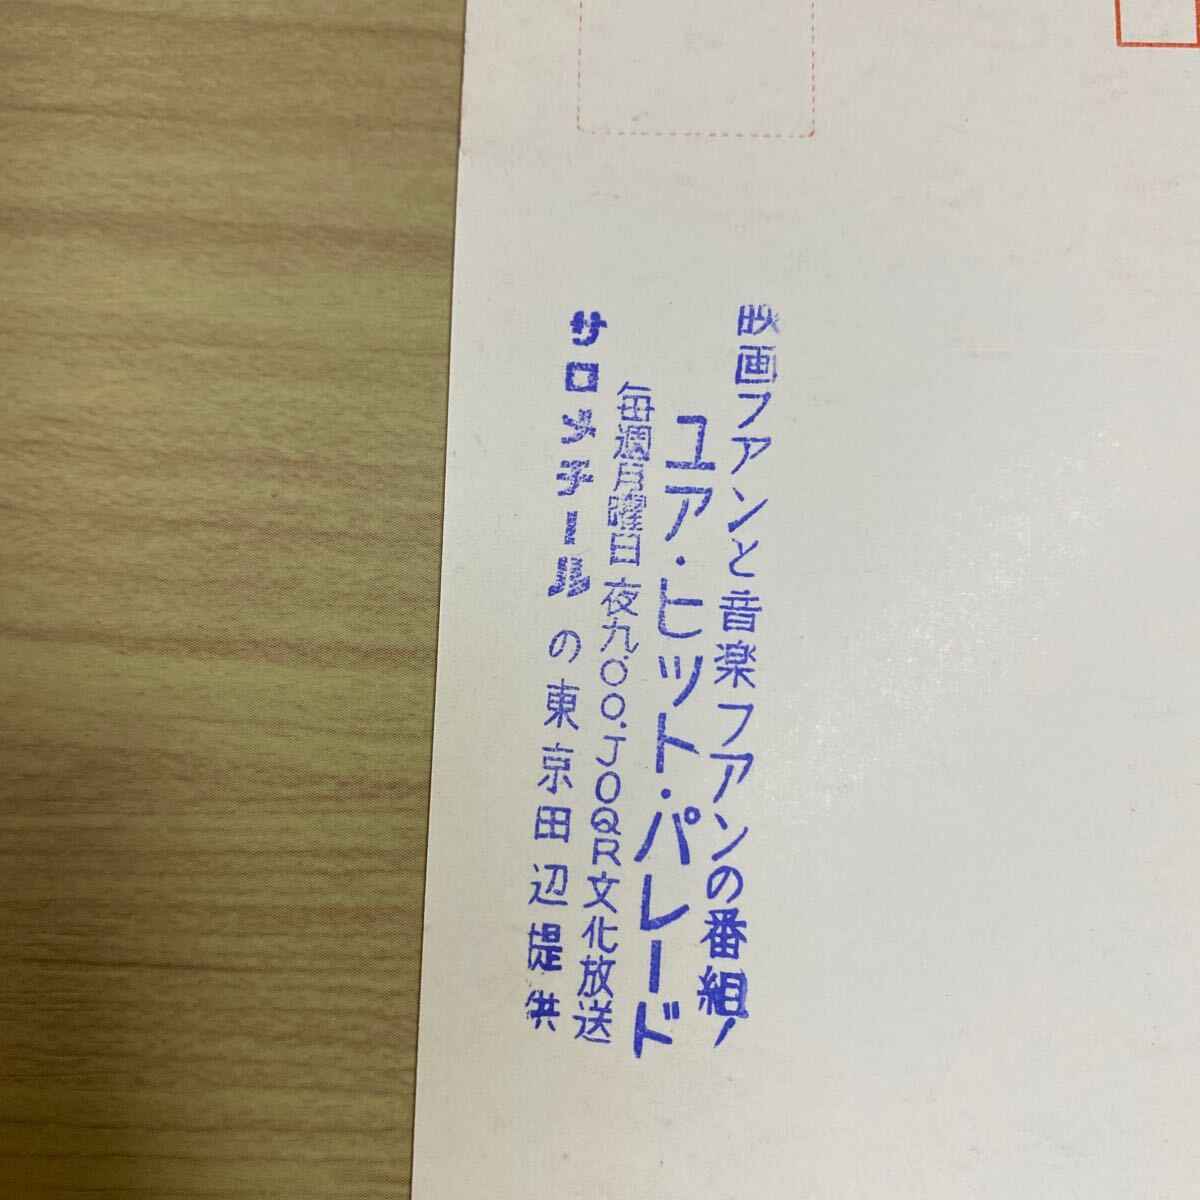 映画フアンと音楽フアンの番組！
ユア・ヒット・パレード
毎週月曜日夜九.00.JOQR文化放送
サロメチールの東京田辺提供